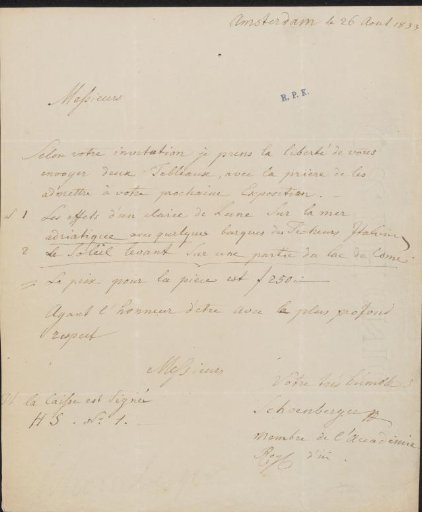 Amsterdam le 26 Aout 1833
Messieurs
R. P. K.
Selon votre invitation je prens la liberté de vous
envoyer deux Tableaux, avec la priere de les
admettre à votre prochaine Exposition. –
1 Les effets d'un claire de Lune sur la mer
adriatique avec quelques barques de Pecheurs Italiens
2 Le Soleil levant sur une partie du Lac de Come
Le prix pour la pièce est f 250 –
Ayant l'honneur d'etre avec le plus profond
respect
Messieurs
Votre très humble
la Caisse est Signée
H S. No 1.
Schoenberger
membre de l'Academie
Roy d'ici.